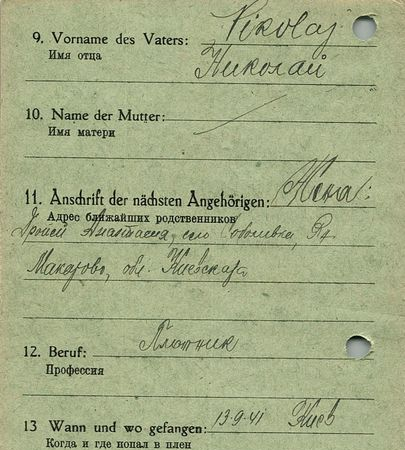 9. Vorname des Vaters: Nikolaj
Имя отца Николай
10. Name der Mutter:
Имя матери
11. Anschrift der nächsten Angehörigen: Жена:
Адрес ближайших родственников
Анастасия, село
Макарово, обл. Киевская
12. Beruf: Плотник
Профессия
13 Wann und wo gefangen: 13-9-41 Киев
Когда и где попал в плен